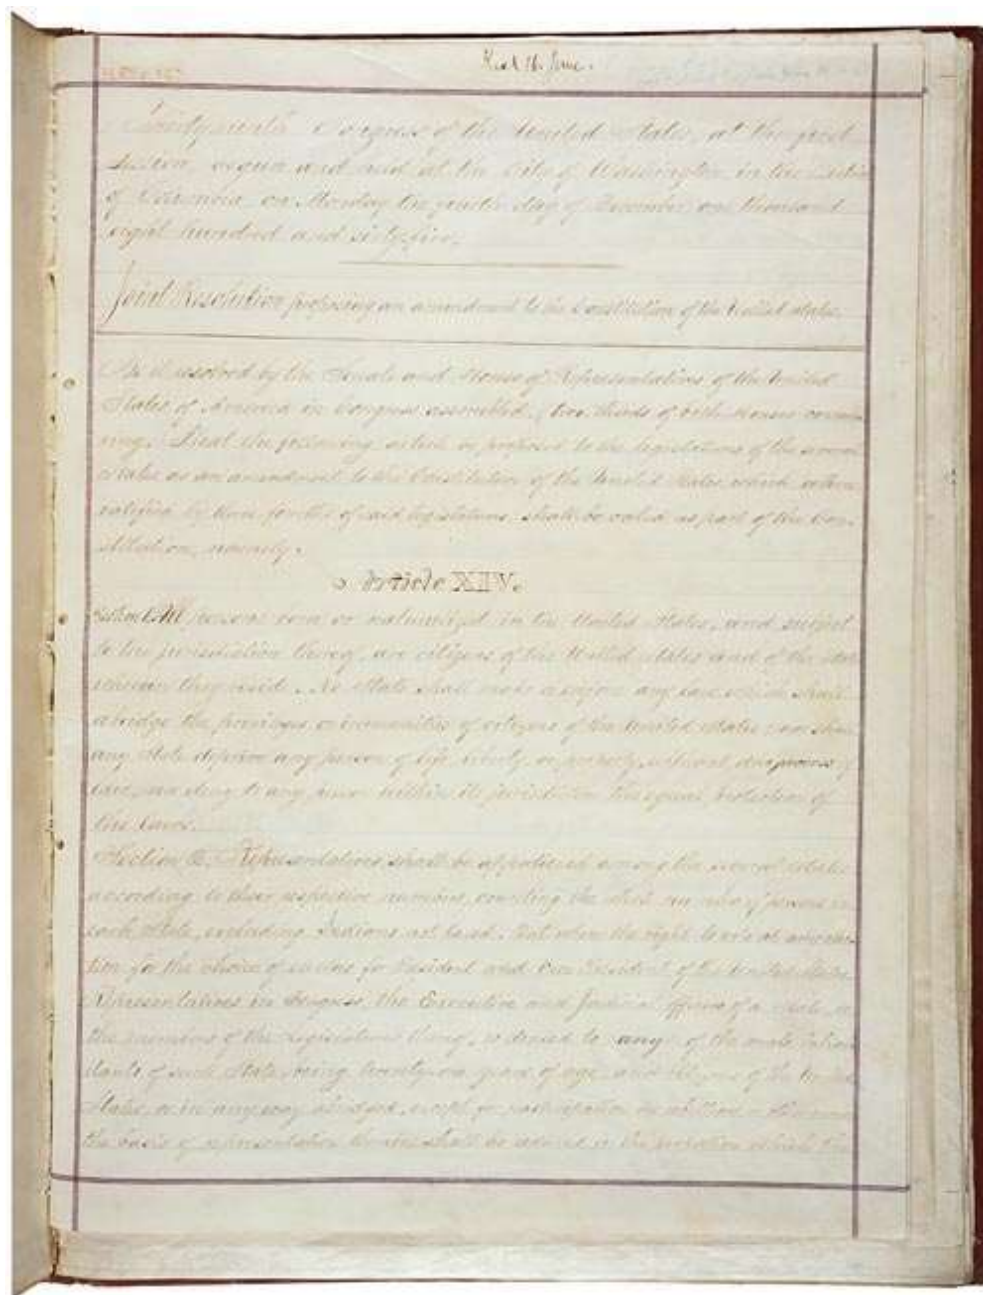 Rec'd 16 June.
Congress of the United States, at the first
Session, begun and held at the City of Washington, in the District
of Columbia, on Monday the fourth day of December, one thousand
eight hundred and sixty-five.
Joint Resolution proposing an amendment to the Constitution of the United States.
Be it resolved by the Senate and House of Representatives of the United
States of America in Congress assembled, (two-thirds of both Houses concur-
ring,) That the following article be proposed to the legislatures of the several
States as an amendment to the Constitution of the United States, which, when
ratified by three-fourths of said legislatures, shall be valid as part of the Con-
stitution, namely:
Article XIV.
Section 1. All persons born or naturalized in the United States, and subject
to the jurisdiction thereof, are citizens of the United States and of the State
wherein they reside. No State shall make or enforce any law which shall
abridge the privileges or immunities of citizens of the United States; nor shall
any State deprive any person of life, liberty, or property, without due process of
law, nor deny to any person within its jurisdiction the equal protection of
the laws.
Section 2. Representatives shall be apportioned among the several States
according to their respective numbers, counting the whole number of persons in
each State, excluding Indians not taxed. But when the right to vote at any elec-
tion for the choice of electors for President and Vice President of the United States,
Representatives in Congress, the Executive and Judicial officers of a State, or
the members of the Legislature thereof, is denied to any of the male inhabi-
tants of such State, being twenty-one years of age, and citizens of the United
States, or in any way abridged, except for participation in rebellion, or other crime,
the basis of representation therein shall be reduced in the proportion which the